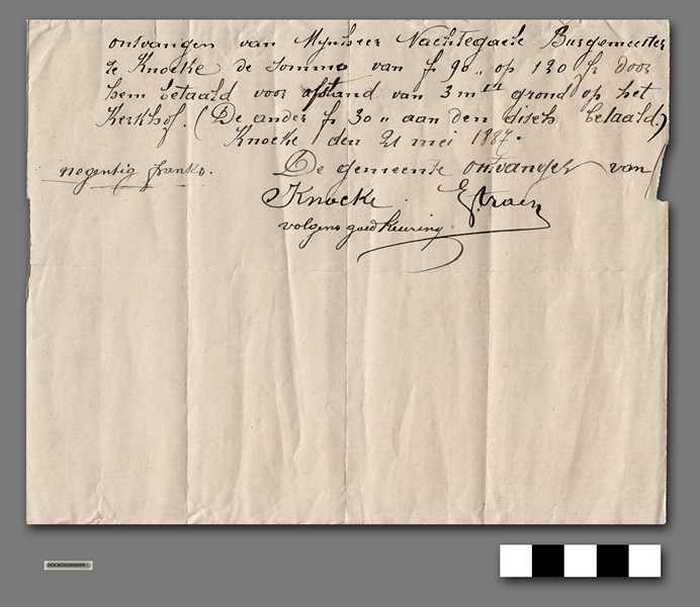 ontvangen van Mynheer Nachtegaele Burgemeester
te Knocke de somme van fr 90 ,, op 120 fr door
hem betaald voor afstand van 3 mtrs grond op het
Kerkhof. (De ander fr 30 ,, aan den disch betaald.)
Knocke den 21 mei 1887.
negentig franks. De gemeente ontvanger van
Knocke. E. Strain
volgens goedkeuring.